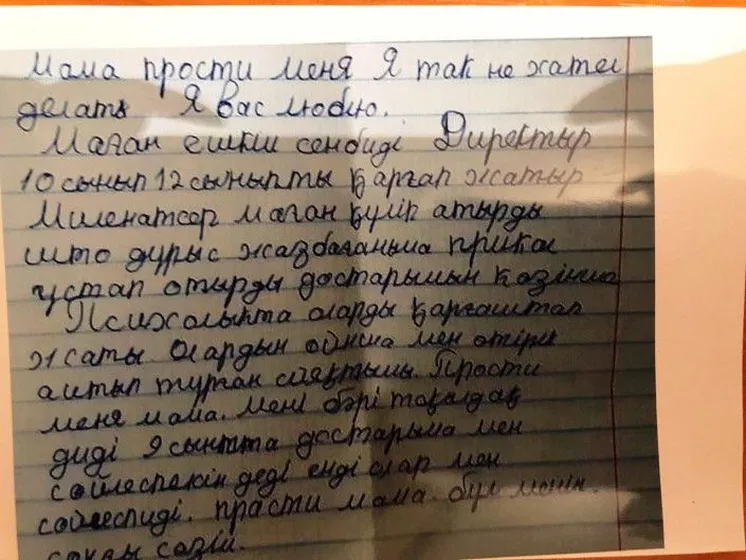 Мама прости меня Я так не хател
делать Я вас люблю.
Маган ешкім сенбиді Директыр
10 сынып 12 сыныпты қарғап жатыр
Миленатсор маған күліп атырды
што дурыс жазбағаныма прикол
ұстап отырды достарымын көзінша
Психолыкта оларды қорғаштап
жаты Олардын ойнша мен өтірік
айтып турған сияқтымы. Прости
меня мама. Мені бәрі тобалдақ
диді 9 сыныпта достарыма мен
сөйлеспекін деді енді олар мен
сөйлеспиді. прасти мама. бұл менін.
соңғы сөзім.